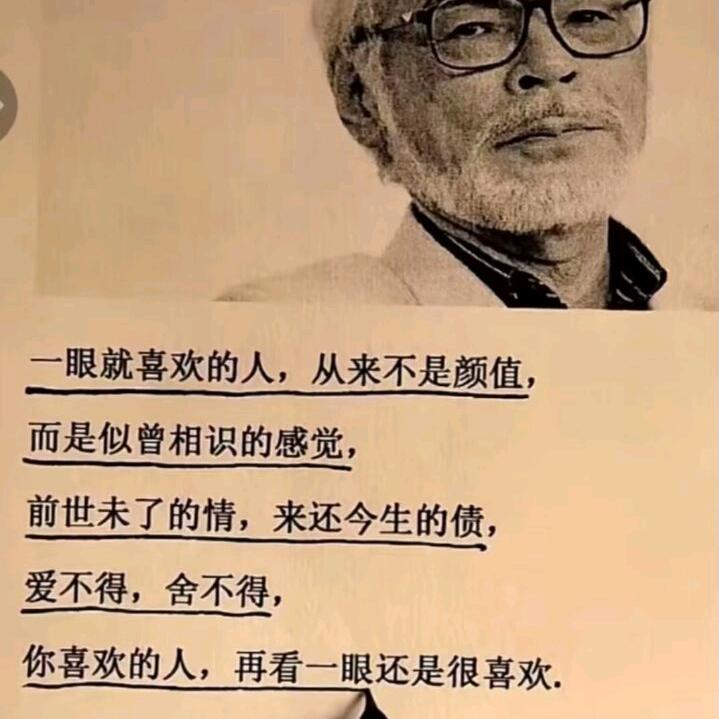 一眼就喜欢的人，从来不是颜值，
而是似曾相识的感觉，
前世未了的情，来还今生的债，
爱不得，舍不得，
你喜欢的人，再看一眼还是很喜欢.